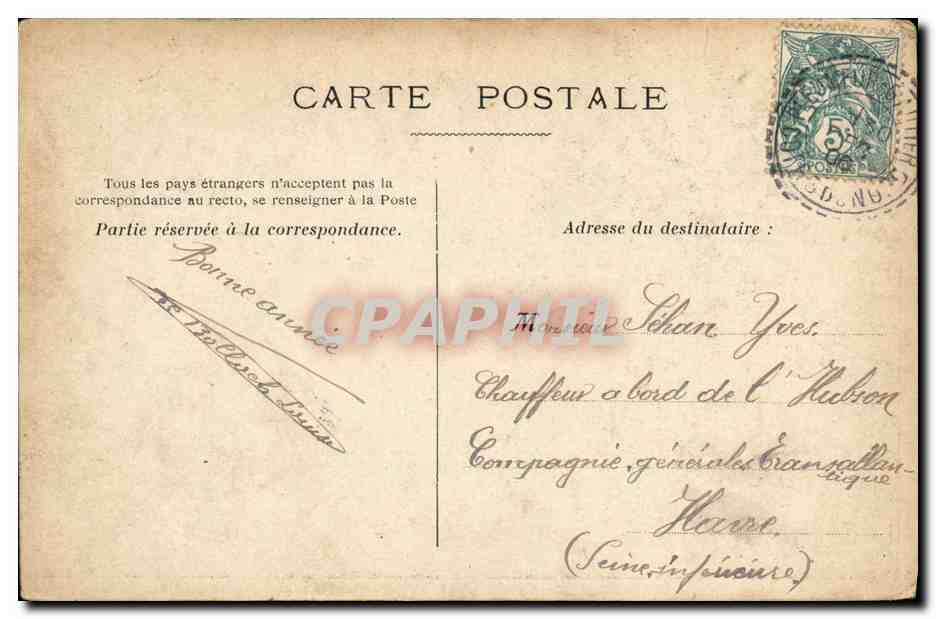 CARTE POSTALE
5
POSTES
Tous les pays étrangers n'acceptent pas la
correspondance au recto, se renseigner à la Poste
Partie réservée à la correspondance.
Bonne année
Adresse du destinataire :
Monsieur Séhan Yves.
Chauffeur a bord de l'Hubson
Compagnie générales Transatlan-
tique
Havre
(Seine inférieure)
CPAPHIL